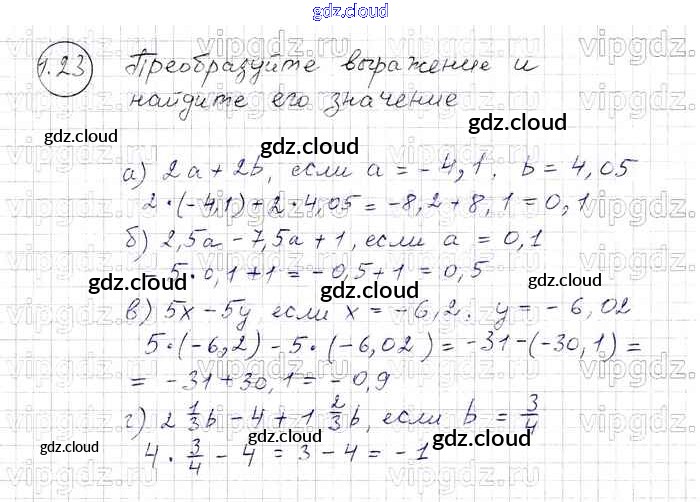 gdz.cloud
1.23 Преобразуйте выражение и
найдите его значение
а) 2a + 2b, если a = -4,1, b = 4,05
2·(-4,1)+2·4,05 = -8,2+8,1=0,1
б) 2,5a - 7,5a + 1, если a = 0,1
-5·0,1+1 = -0,5+1 = 0,5
в) 5x - 5y если x = -6,2, y = -6,02
5·(-6,2) - 5·(-6,02) = -31-(-30,1) =
= -31+30,1 = -0,9
г) 2 1/3 b - 4 + 1 2/3 b, если b = 3/4
4 · 3/4 - 4 = 3 - 4 = -1
gdz.cloud
gdz.cloud
gdz.cloud
gdz.cloud
gdz.cloud
gdz.cloud
gdz.cloud
gdz.cloud
gdz.cloud
gdz.cloud
gdz.cloud
vipgdz.
vipgdz.
vipgdz.
vipgdz.
vipgdz.